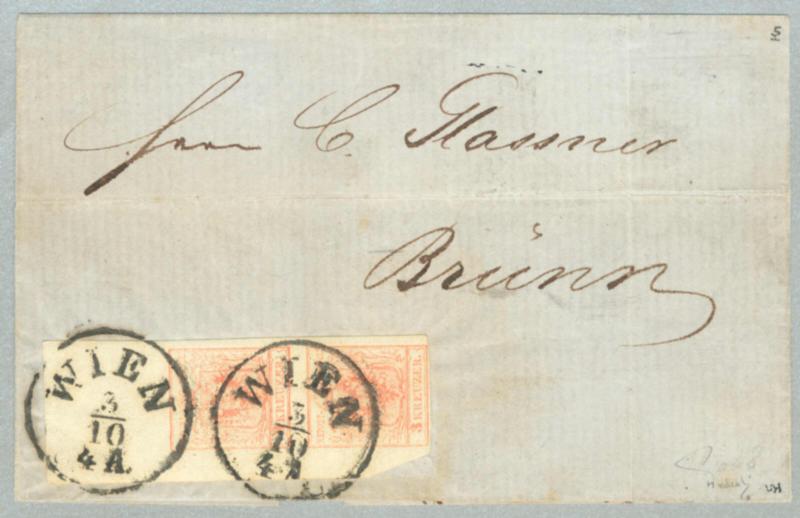 5
Herrn C. Glassner
Brünn
WIEN
3
10
4 A.
WIEN
3
10
4 A
KREUZER.
3 KREUZER.